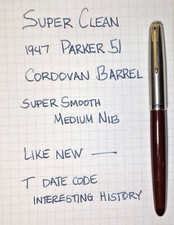 SUPER CLEAN
1947 PARKER 51
CORDOVAN BARREL
SUPER SMOOTH
MEDIUM NIB
LIKE NEW —
T DATE CODE
INTERESTING HISTORY